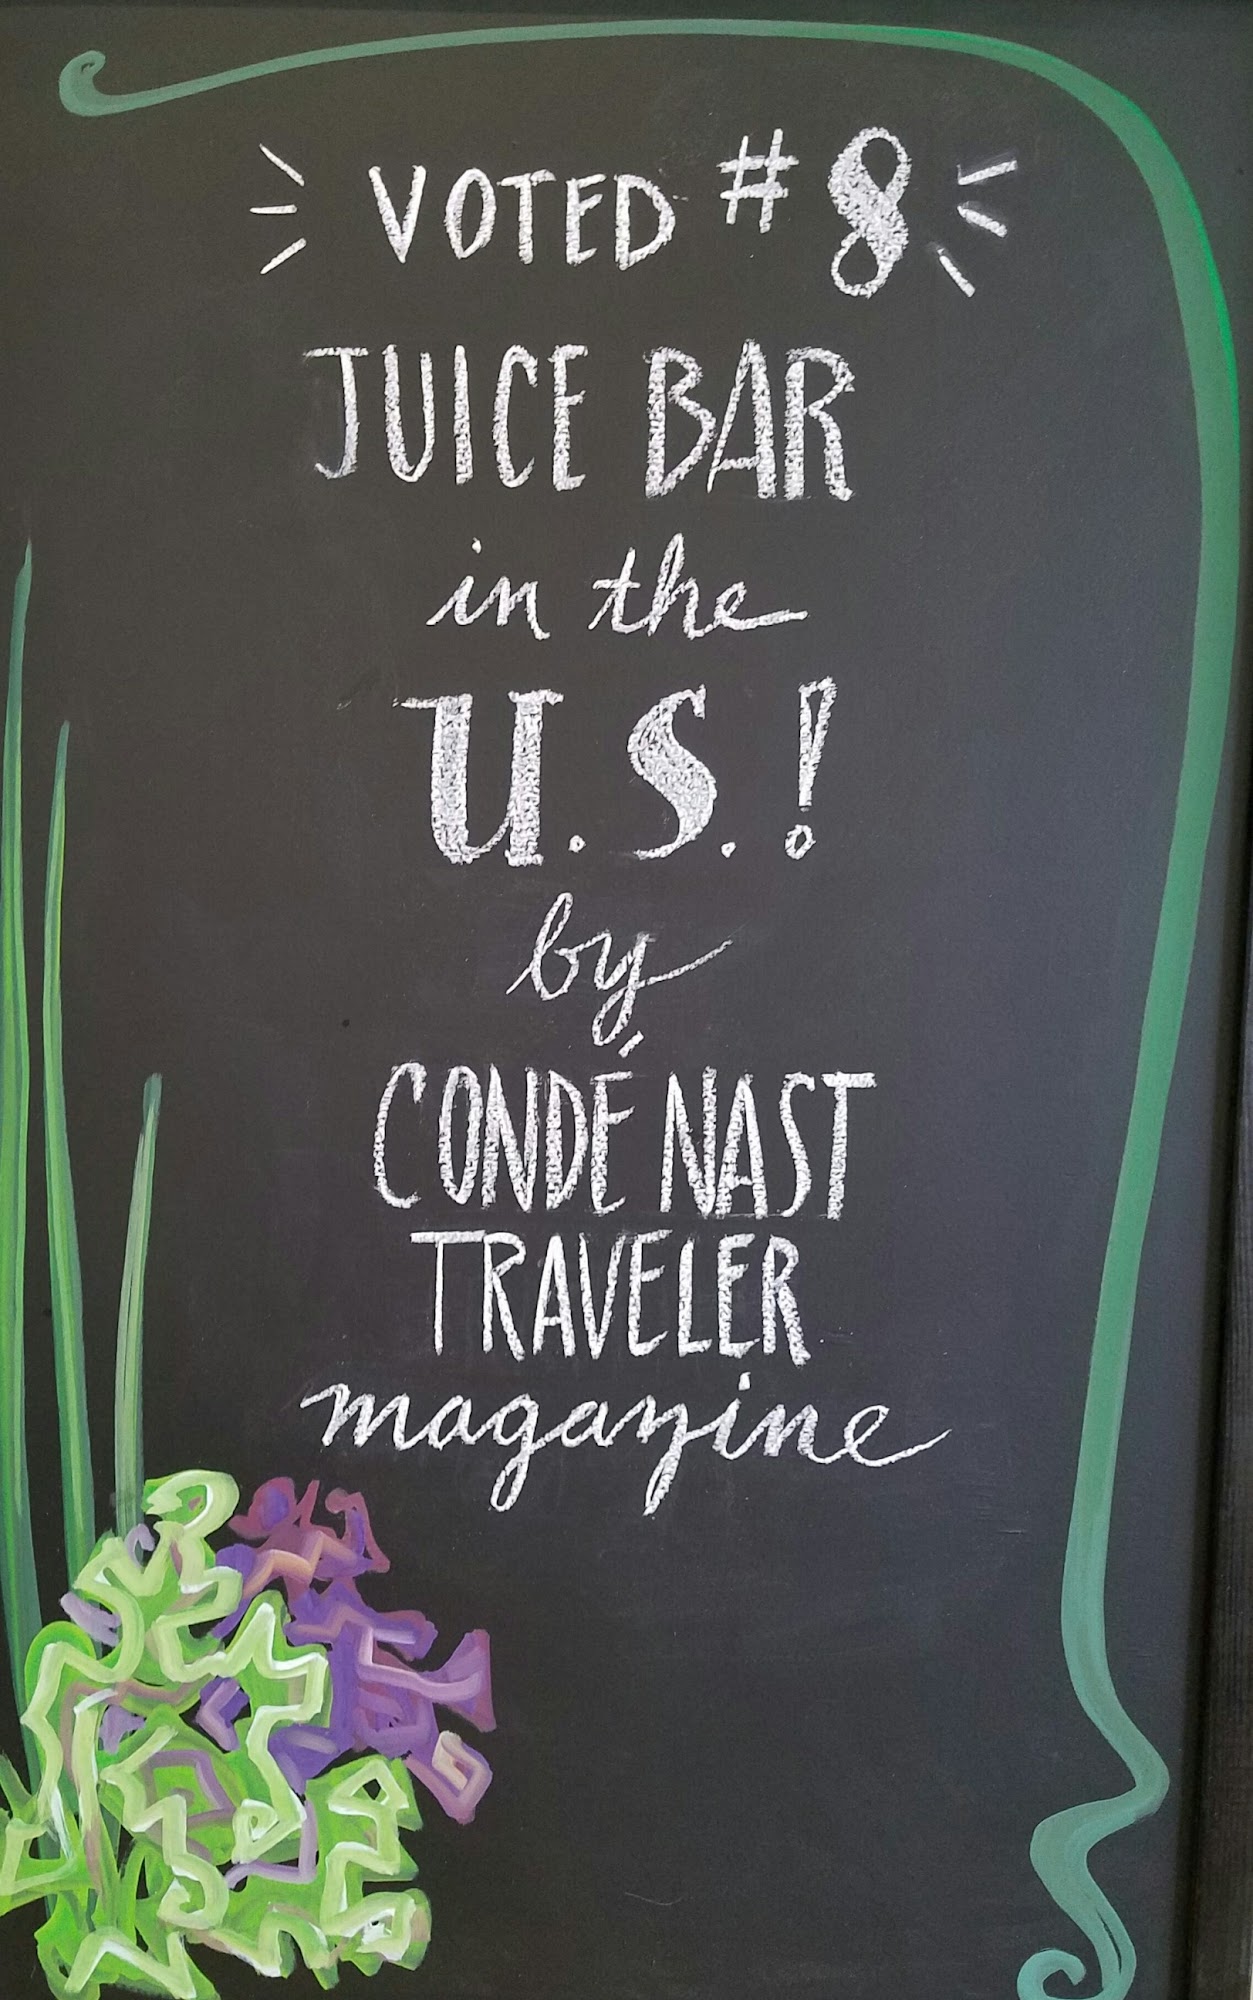 VOTED #8
JUICE BAR
in the
U.S.!
by
CONDÉ NAST
TRAVELER
magazine